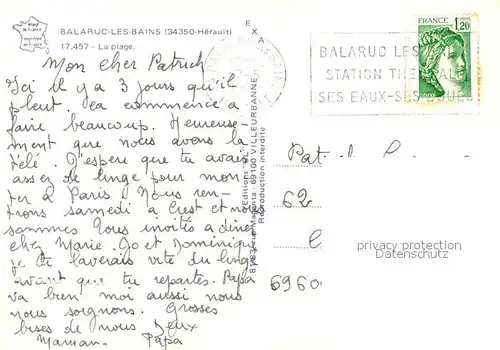 BALARUC-LES-BAINS (34350-Hérault)
17.457 - La plage.
Mon cher Patrick
Ici il y a 3 jours qu'il
pleut. ça commence a
faire beaucoup. Heureuse-
ment que nous avons la
télé. J'espere que tu avais
assez de linge pour mon
ter a Paris. Nous ren-
trons samedi a Crest et nous
sommes tous invités a diner
chez Marie. Jo et Dominique
je te laverais vite du linge
avant que tu repartes. Papa
va bien moi aussi nous
nous soignons. Grosses
bises de nous deux
Maman Papa
EXA
Editions
69100 VILLEURBANNE
Reproduction interdite
FRANCE
1,20
BALARUC LES
STATION THE
SES EAUX-SES BOUES
Pat
62
6960
privacy protection
Datenschutz